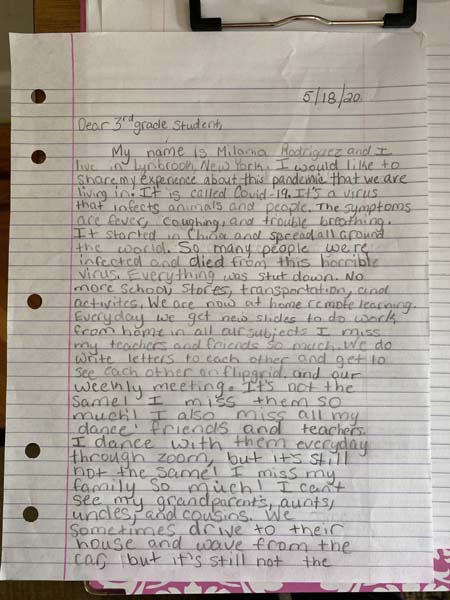 5/18/20
Dear 3rd grade student,
My name is Milania Rodriguez and I
live in Lynbrook, New York. I would like to
share my experience about this pandemic that we are
living in. It is called Covid-19. It's a virus
that infects animals and people. The symptoms
are fever, coughing, and trouble breathing.
It started in China and spread all around
the world. So many people were
infected and died from this horrible
virus. Everything was shut down. No
more school, stores, transportation, and
activites. We are now at home remote learning.
Everyday we get new slides to do work
from home in all our subjects I miss
my teachers and friends so much. We do
write letters to each other and get to
see each other on flipgrid. and our
weekly meeting. It's not the
same! I miss them so
much! I also miss all my
dance friends and teachers.
I dance with them everyday
through zoom, but it's still
not the same! I miss my
family so much! I can't
see my grandparents, aunts,
uncles, and cousins. We
sometimes drive to their
house and wave from the
car, but it's still not the